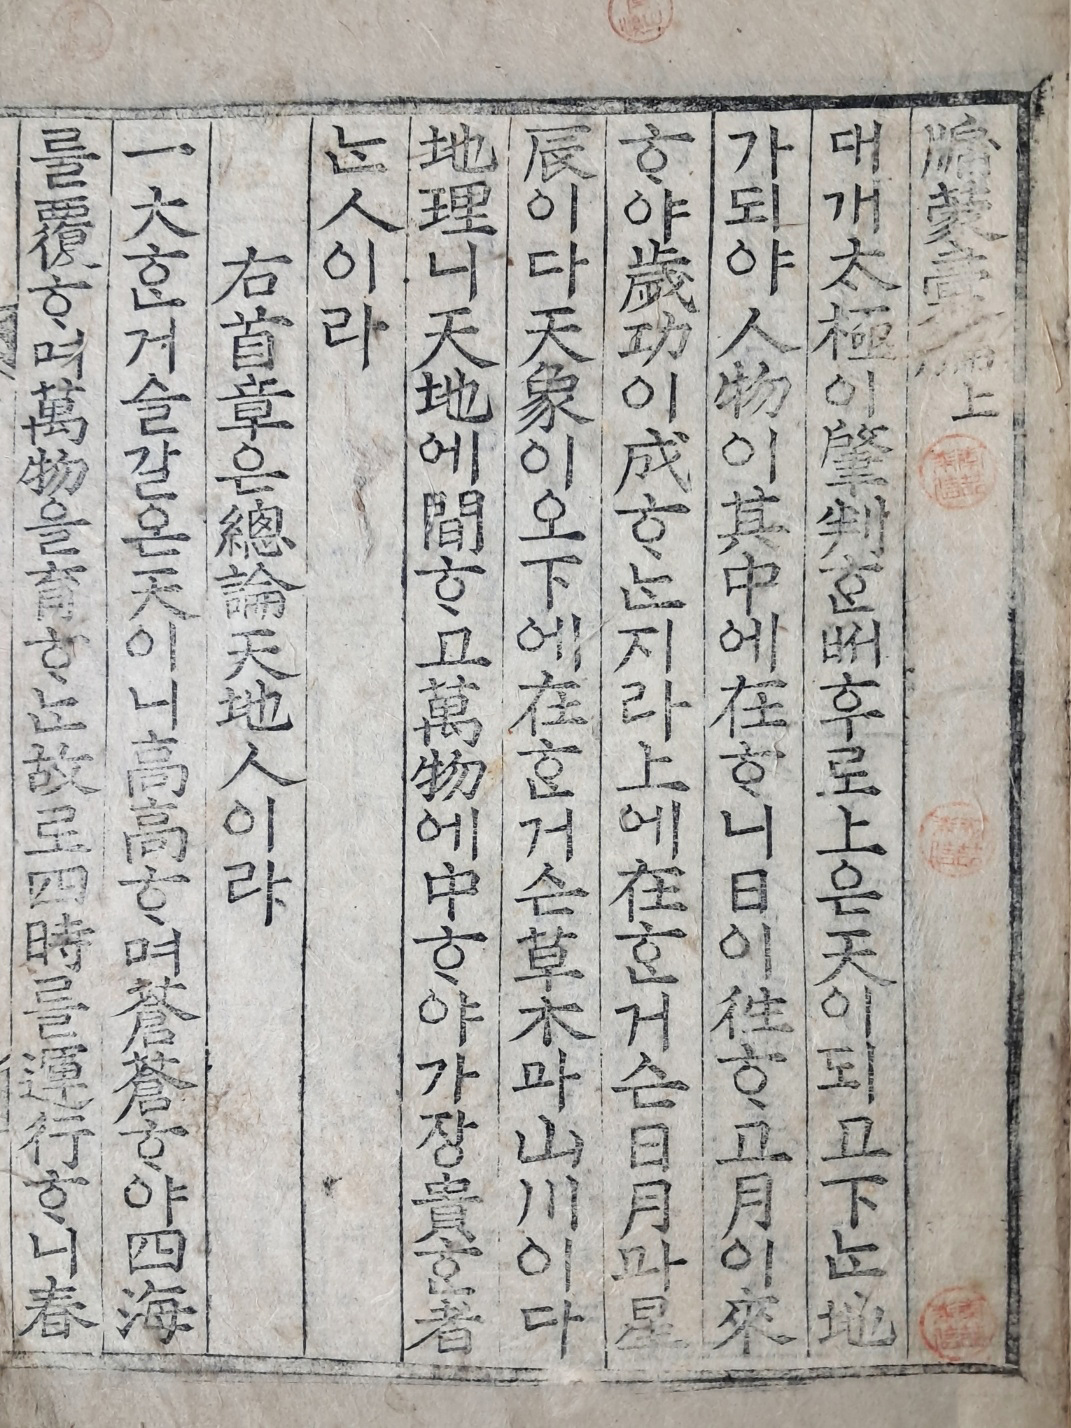 牖蒙彙編上
대개太極이肇判ᄒᆞᆫᄣᅢ후로上은天이되고下ᄂᆞᆫ地
가되야人物이其中에在ᄒᆞ니日이徃ᄒᆞ고月이來
ᄒᆞ야歲功이成ᄒᆞᄂᆞᆫ지라上에在ᄒᆞᆫ거슨日月과星
辰이다天象이오下에在ᄒᆞᆫ거슨草木과山川이다
地理니天地에間ᄒᆞ고萬物에中ᄒᆞ야가장貴ᄒᆞᆫ者
ᄂᆞᆫ人이라
右首章은總論天地人이라
一大ᄒᆞᆫ거슬갈온天이니高高ᄒᆞ며蒼蒼ᄒᆞ야四海
를覆ᄒᆞ며萬物을育ᄒᆞᄂᆞᆫ故로四時를運行ᄒᆞ니春